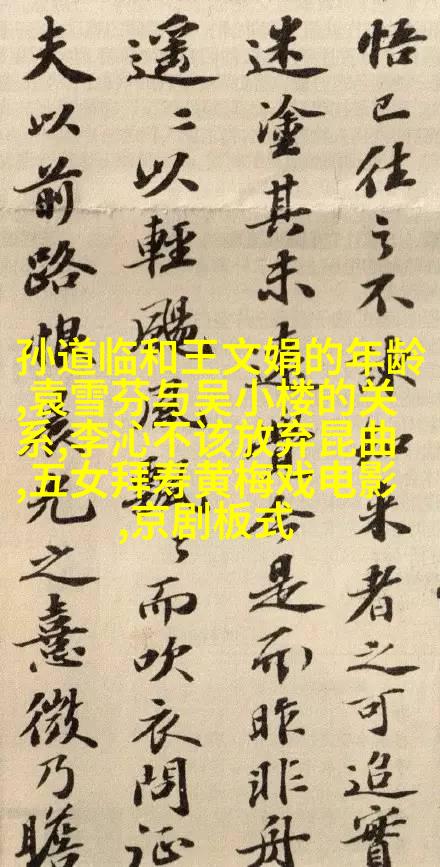 悟已往之不来者之可追實
迷塗其未是而昨非舟
遥〻以輕颺風飄〻而吹衣問征
夫以前路恨晨光之熹微乃瞻
孙道临和王文娟的年龄
,袁雪芬与吴小楼的关
系,李沁不该放弃昆曲
,五女拜寿黄梅戏电影
,京剧板式